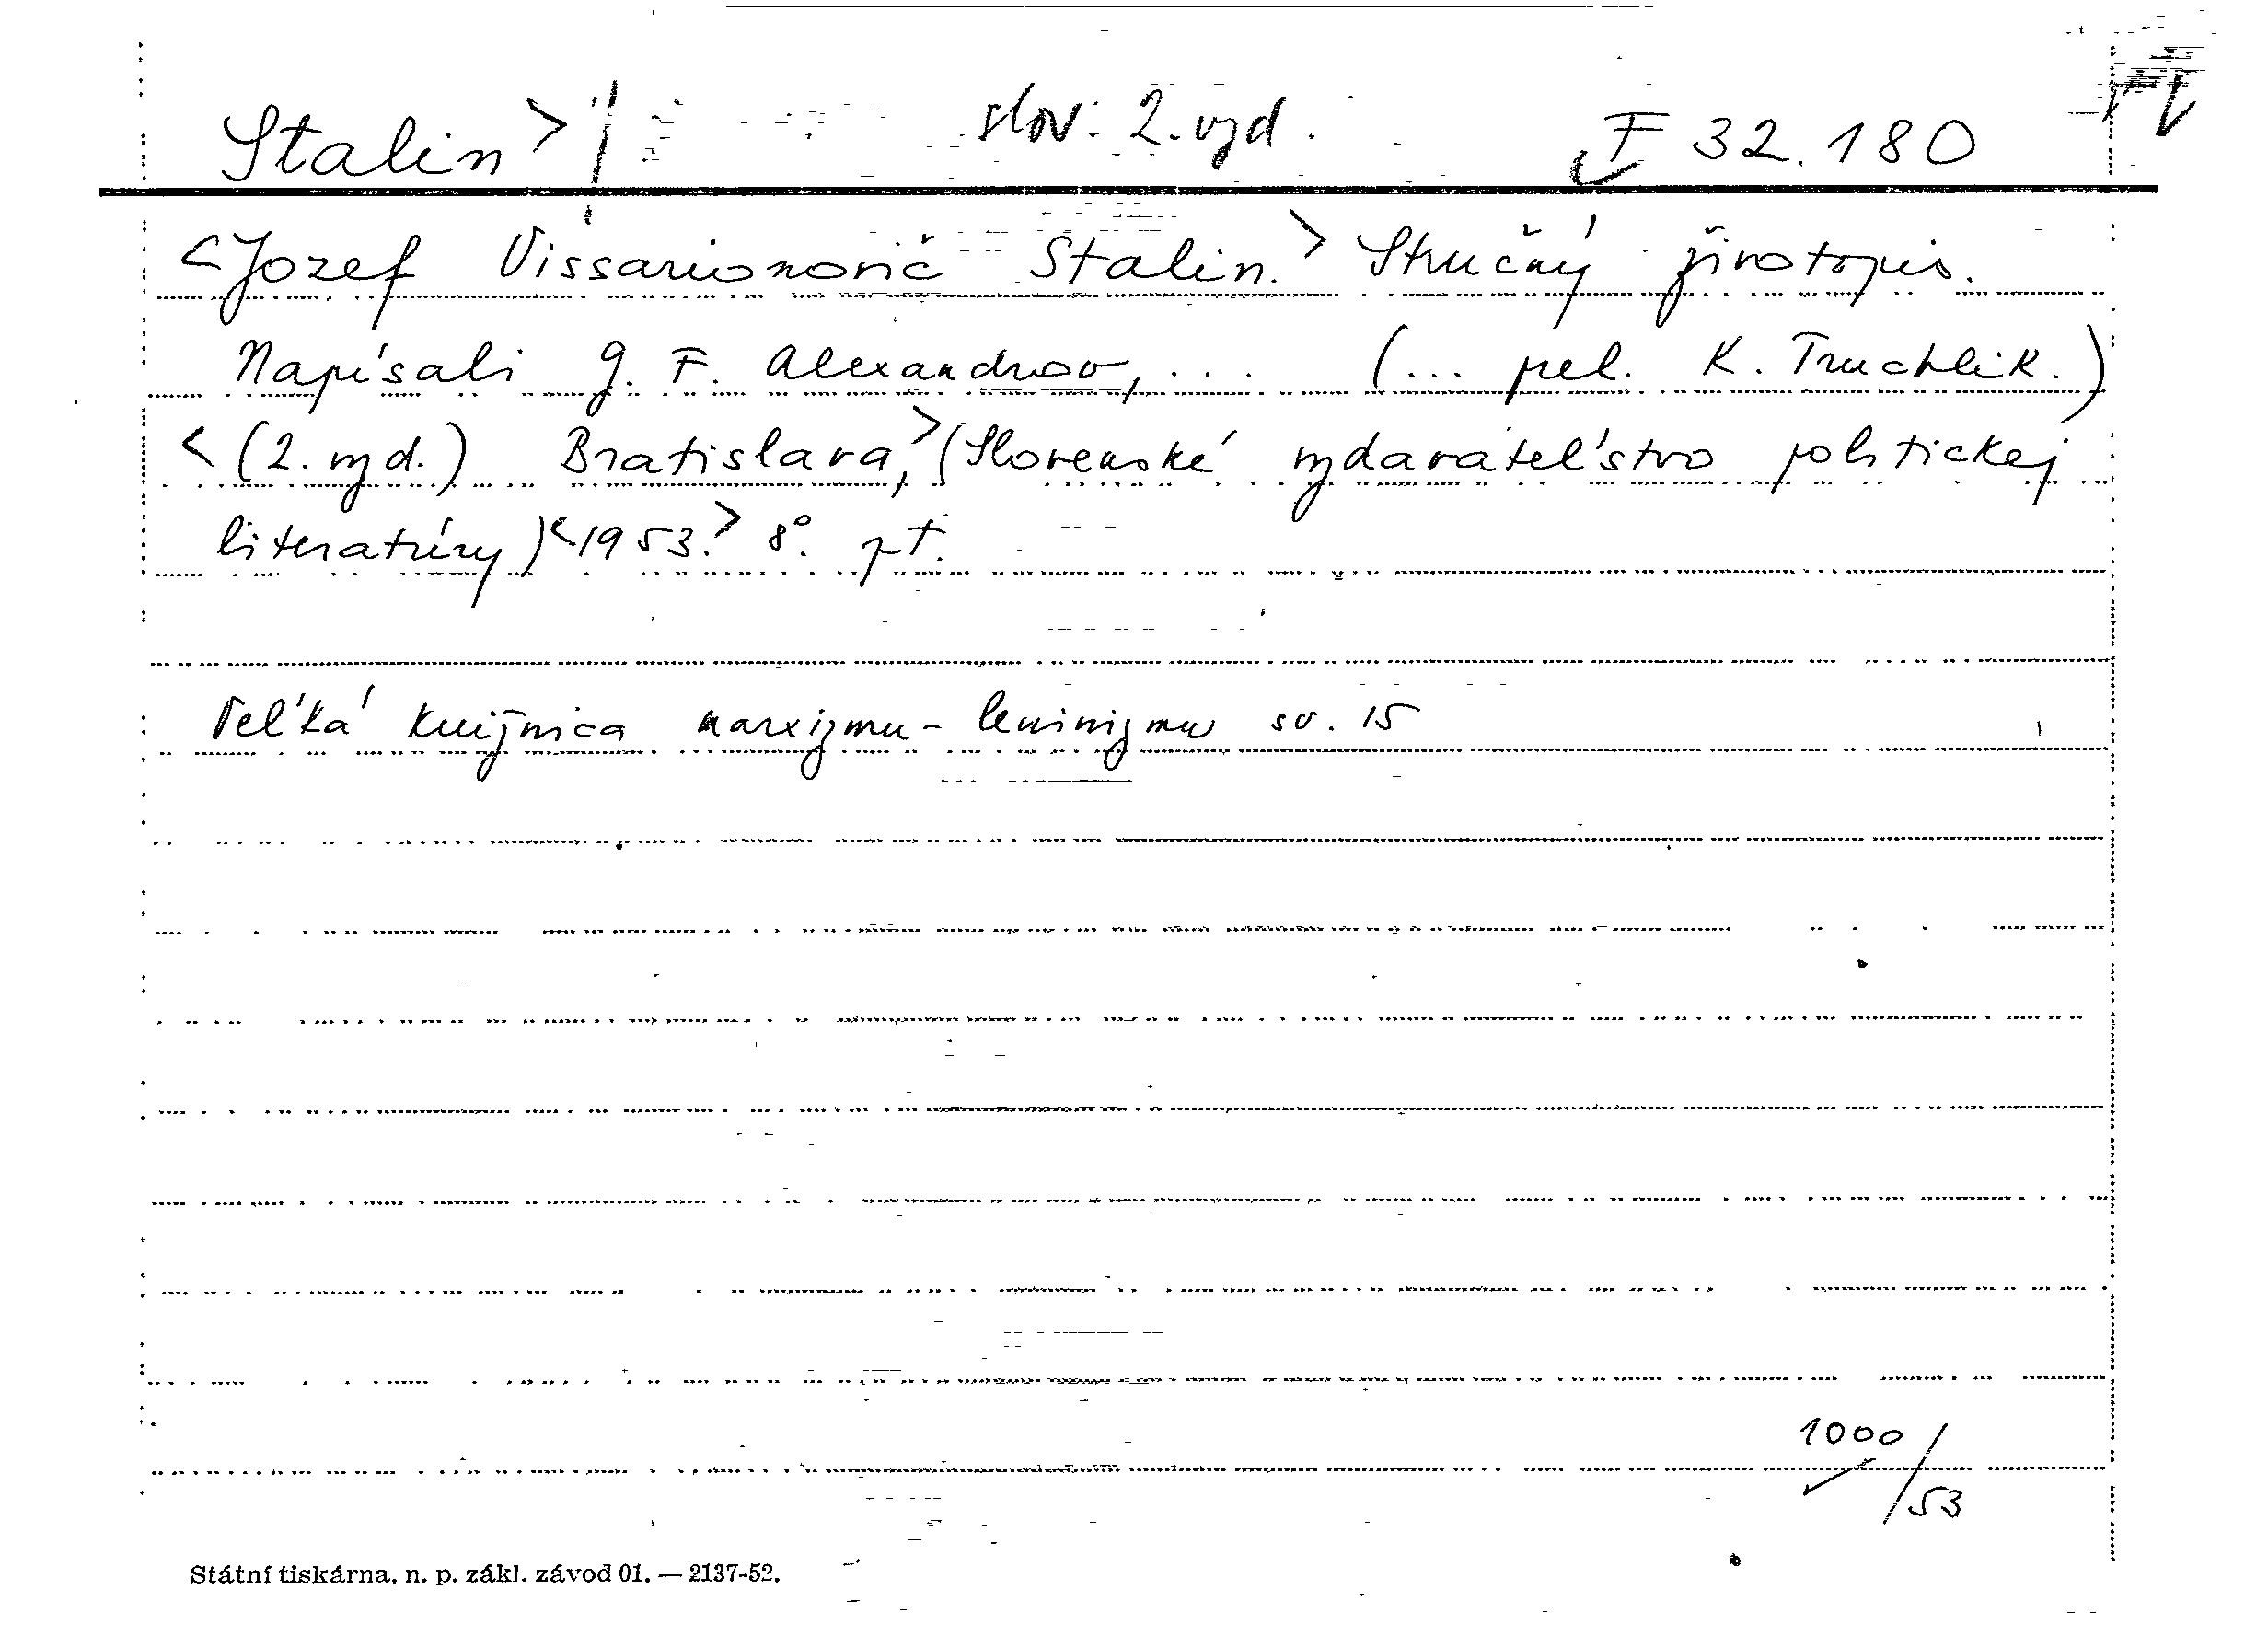 Stalin > slov. 2. vyd. F 32.180
<Jozef Vissarionovič Stalin.> Stručný životopis.
Napísali G. F. Alexandrov, ... (... prel. K. Truchlik.)
<(2. vyd.) Bratislava,> (Slovenské vydavateľstvo politickej
literatúry) <1953.> 8°. pt.
Veľká knižnica marxizmu-leninizmu sv. 15
1000/53
Státní tiskárna, n. p. zákl. závod 01. — 2137-52.